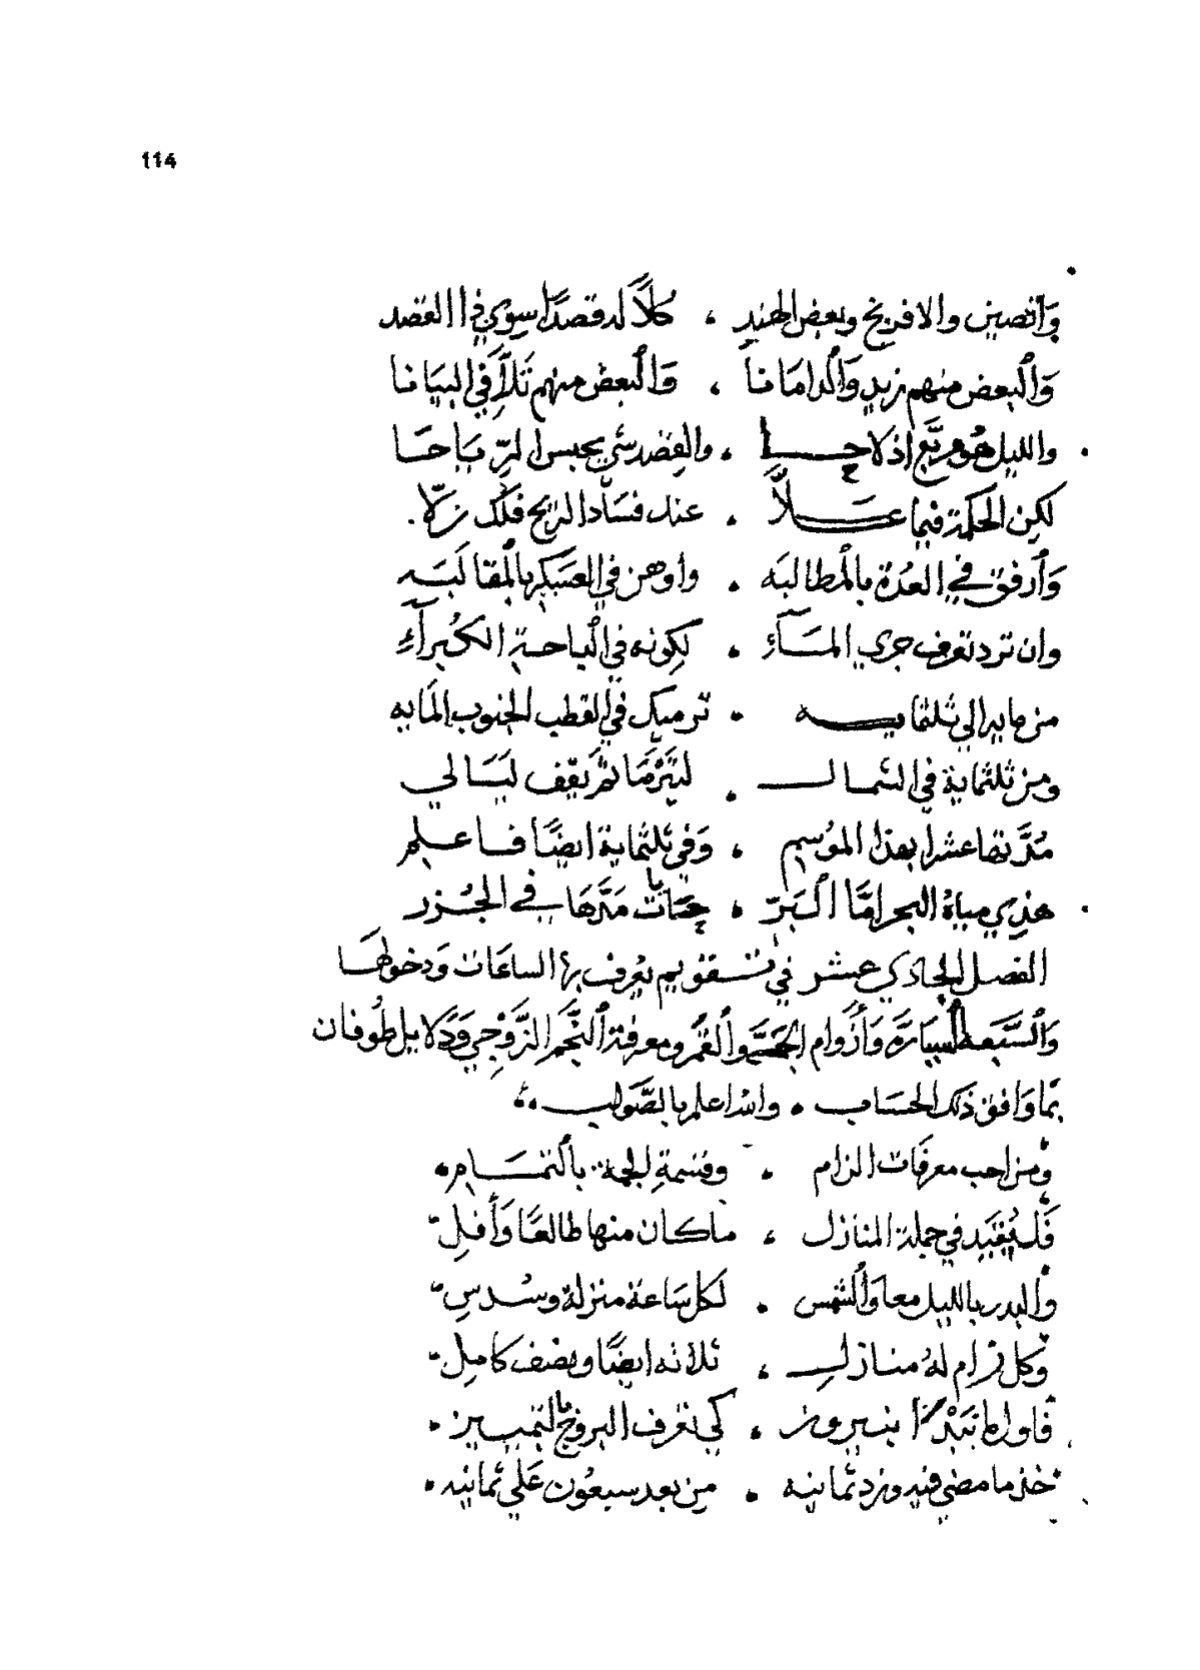 114
والصين والافرنج وبعض الهند ، كلاً له قصدًا سوى ذا القصد
والبعض منهم زيد والدامانا ، والبعض منهم تلا في البيانا
والليل هو مربع اذ لاحا ، والقصد شي يحبس الرياحا
لكن الحكمة فيما علا ، عند فساد الريح فلك زلا
وارفق في العدة بالمطالبه ، واوهن في العسكر بالمقالبه
وان ترد تعرف جري المآءِ ، لكونه في الباحة الكبرآءِ
من مايه الي ثلثمايه ، ترميك في القطب الجنوب المايه
ومن ثلثماية في الشمال ، ليتزما ثم يقف ليالي
مدتها عشرا بهذا الموسم ، وفي ثلثماية ايضًا فاعلم
هذي مياهُ البحر امَّا البَرّ ، جتات مدّها في الجزر
الفصل الحادي عشر في تقويم يعرف بها الساعات ودخولها
والسبعة السيارة وازوام الجمَّة والقمر ومعرفة النجم الزوجي ودلايل طوفان
بما وافق ذلك الحساب ، والله اعلم بالصواب
ومن احب معرفات الزام ، وقسمة الجمة بالتمام
فليقيد في جملة المنازل ، ما كان منها طالعًا وآفل
والبدر بالليل معا والشمس ، لكل ساعة منزلة وسدس
وكل زام له منازل ، ثلاثه ايضًا ونصف كامل
فاول ما نبدا بنيروز ، كي نعرف البروج بالتمييز
خذ ما مضي فيه وزد ثمانيه ، من بعد سبعون علي ثمانيه